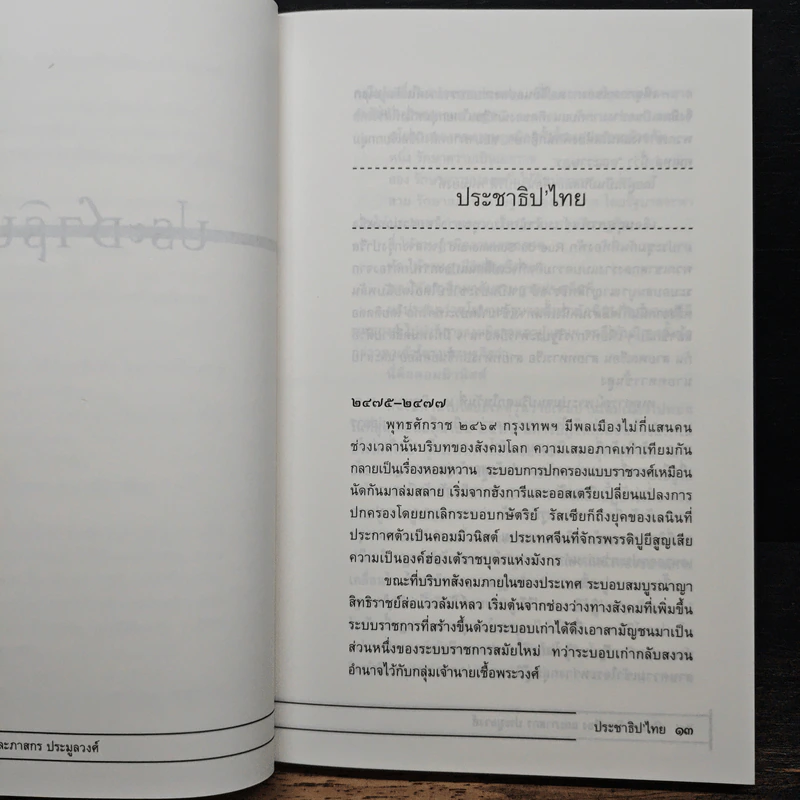 ประชาธิป'ไทย
๒๔๗๕–๒๔๗๗
พุทธศักราช ๒๔๖๙ กรุงเทพฯ มีพลเมืองไม่กี่แสนคน
ช่วงเวลานั้นบริบทของสังคมโลก ความเสมอภาคเท่าเทียมกัน
กลายเป็นเรื่องหอมหวาน ระบอบการปกครองแบบราชวงศ์เหมือน
นัดกันมาล่มสลาย เริ่มจากฮังการีและออสเตรียเปลี่ยนแปลงการ
ปกครองโดยยกเลิกระบอบกษัตริย์ รัสเซียก็ถึงยุคของเลนินที่
ประกาศตัวเป็นคอมมิวนิสต์ ประเทศจีนที่จักรพรรดิปูยีสูญเสีย
ความเป็นองค์ฮ่องเต้ราชบุตรแห่งมังกร
ขณะที่บริบทสังคมภายในของประเทศ ระบอบสมบูรณาญา
สิทธิราชย์ส่อแววล้มเหลว เริ่มต้นจากช่องว่างทางสังคมที่เพิ่มขึ้น
ระบบราชการที่สร้างขึ้นด้วยระบอบเก่าได้ดึงเอาสามัญชนมาเป็น
ส่วนหนึ่งของระบบราชการสมัยใหม่ ทว่าระบอบเก่ากลับสงวน
อำนาจไว้กับกลุ่มเจ้านายเชื้อพระวงศ์
ละภาสกร ประมูลวงศ์
ประชาธิป'ไทย ๑๓